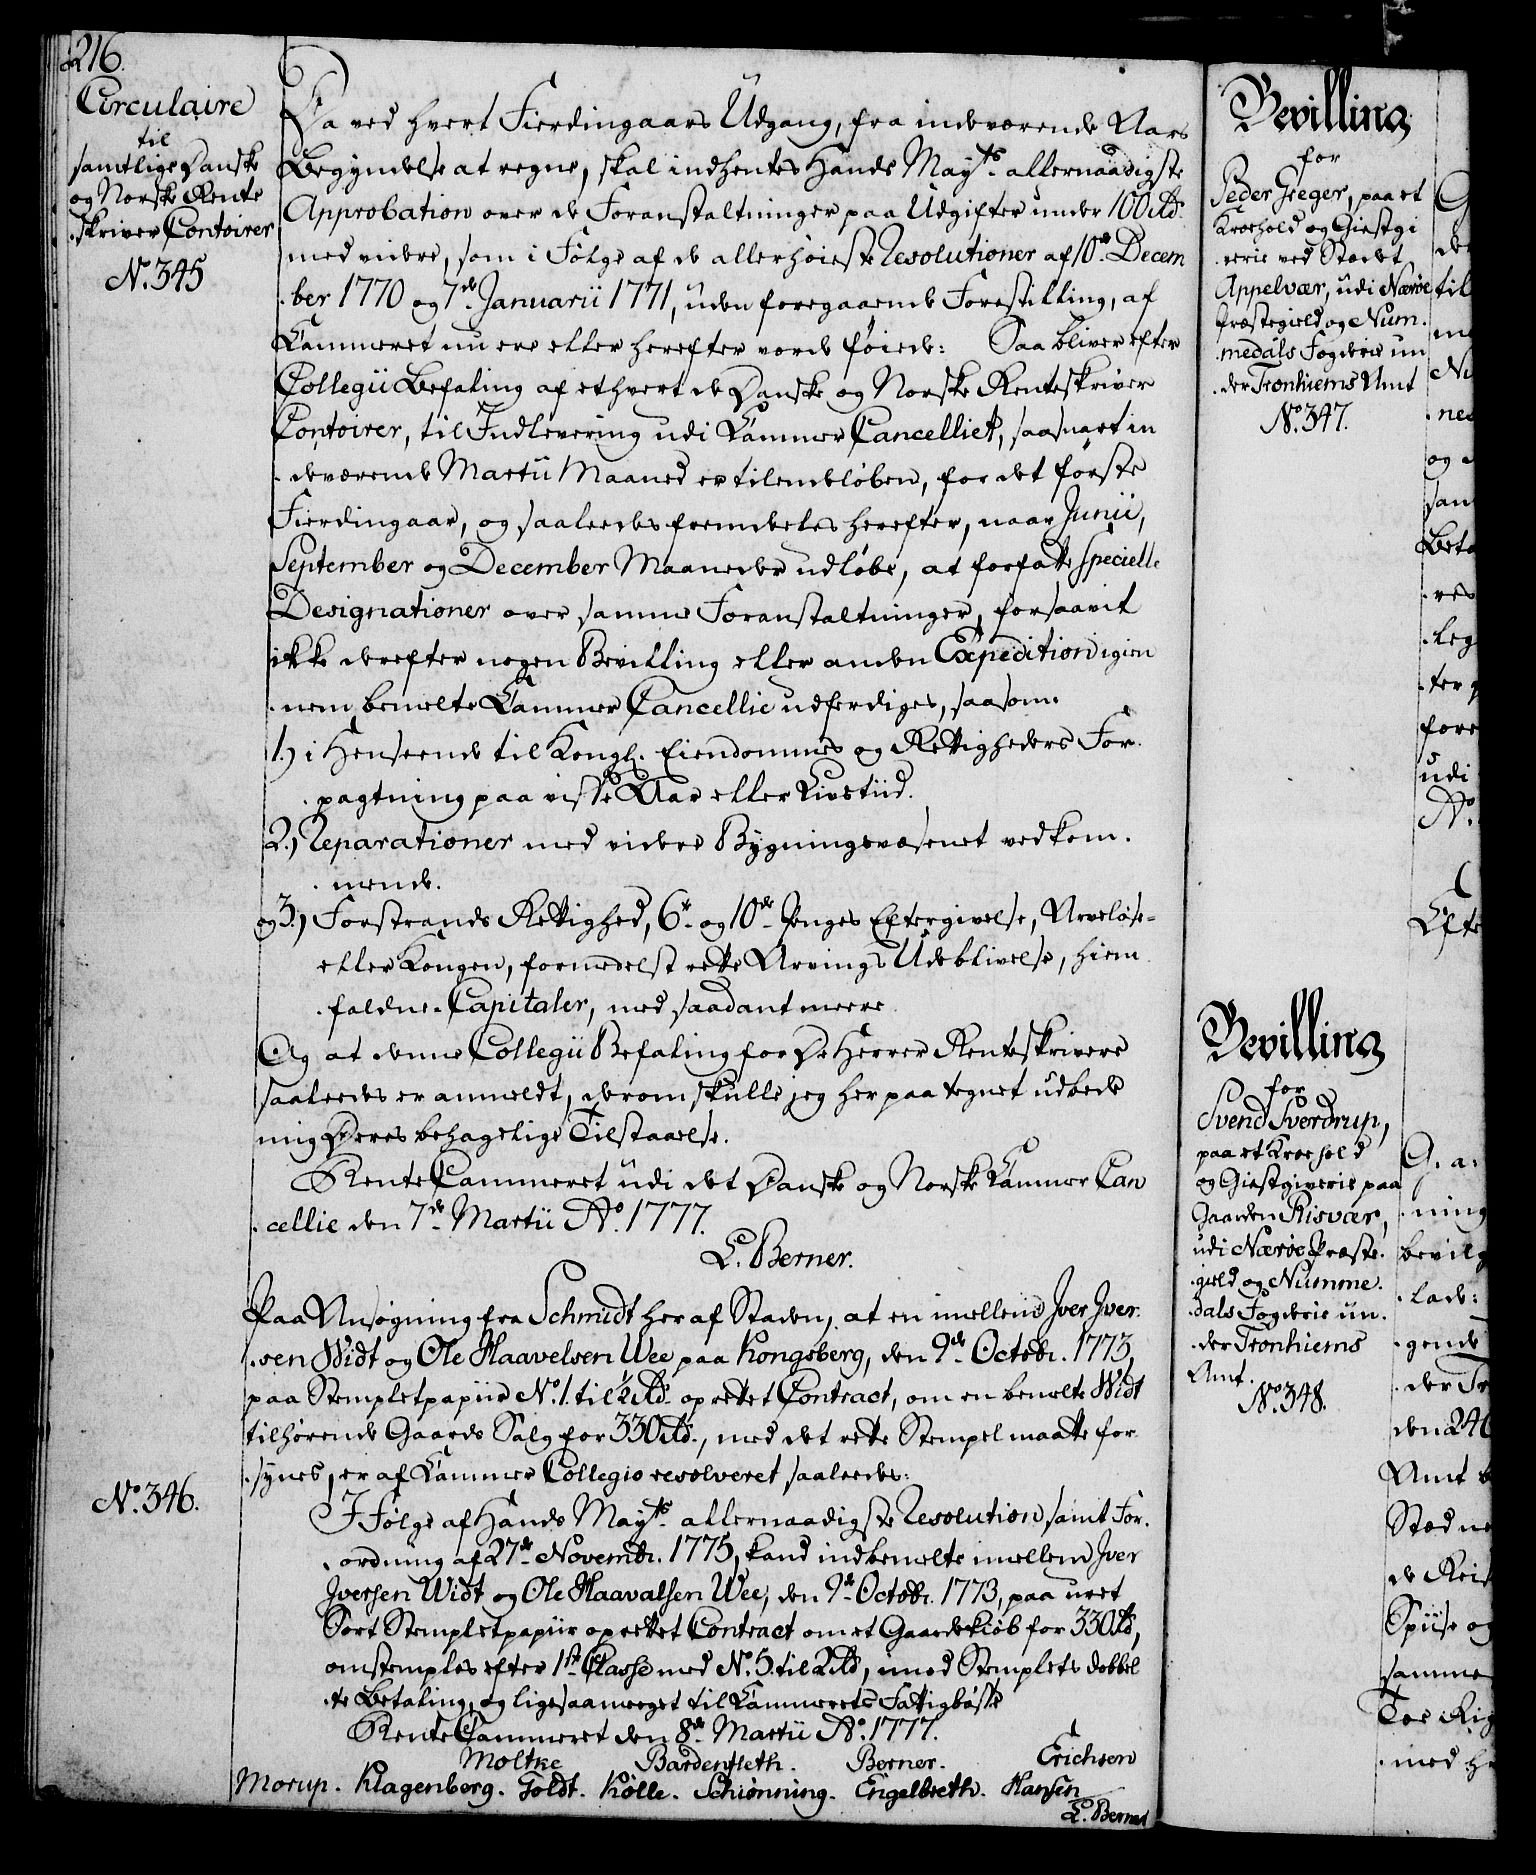 216.
Circulaire
til
samtlige Danske
og Norske Rente
skriver Contoirer
No. 345
Da ved hvert Fierdingaars Udgang, fra indeværende Aars
Begyndelse at regne, skal indhentes Hands Mayts. allernaadigste
Approbation over de Foranstaltninger paa Udgifter under 100 rd.
med videre, som i Følge af de allerhøieste Resolutioner af 10de Decem
ber 1770 og 7de Januarii 1771, uden foregaaende Forestilling, af
Cammeret nu ere eller herefter vorde føiede: Saa bliver efter
Collegii Befaling af ethvert de Danske og Norske Renteskriver
Contoirer, til Indlevering udi Cammer Cancelliet, saasnart in
deværende Martii Maaned er tilendeløben, for det første
Fierdingaar, og saaleedes fremdeeles herefter, naar Junii,
September og December Maaneder udløbe, at forfatte specielle
Designationer over samme Foranstaltninger, forsaavit
ikke derefter nogen Bevilling eller anden Expedition igien
nem bemelte Cammer Cancellie udferdiges, saasom
1.) i Henseende til Kongl. Eiendomme og Rettigheders For
pagtning paa visse Aar eller Livstiid.
2.) Reparationer med videre Bygningsvæsenet vedkom
mende.
og 3.) Forstrands Rettighed, 6te og 10de Penges Eftergivelse, Arveløse
eller Kongen, formedelst rette Arvings Udeblivelse, hiem
faldne Capitaler, med saadant meere
Og at denne Collegii Befaling for De Herrer Renteskrivere
saaleedes er anmeldt, derom skulle jeg her paa tegnet udbede
mig Deres behagelige Tilstaaelse.
Rente Cammeret udi det Danske og Norske Cammer Can
cellie den 7de Martii Ao. 1777.
C. Berner.
No. 346.
Paa Ansøgning fra Schmidt her af Staden, at en imellem Iver Iver
sen Widt og Ole Haavelsen Wee paa Kongsberg, den 9de Octobr. 1773,
paa Stempletpapiir No. 1. til ½ rd. oprettet Contract, om en bemelte Widt
tilhørende Gaards Salg for 330 rd., med det rette Stempel maatte for
synes, er af Cammer Collegio resolveret saaleedes:
I Følge af Hands Mayts. allernaadigste Resolution samt For
ordning af 27de Novembr. 1775, kand indbemelte imellem Iver
Iversen Widt og Ole Haavalsen Wee, den 9de Octobr. 1773, paa uret
Sort Stempletpapiir oprettet Contract om et Gaardekiøb for 330 rd,
omstemples efter 1ste Classe med No. 5. til 2 rd, imod Stemplets dobbel
te Betaling, og ligesaameeget til Cammerets Fattigbøsse
Rente Cammeret den 8de Martii Ao. 1777.
Moltke Bardenfleth. Berner. Erichsen
Morup. Klagenberg. Toldt. Kølle. Schiønning. Engelbreth. Hansen
C. Berner
Bevilling
for
Peder Greger, paa et
Kroehold og Giestgi
verie ved Stædet
Appelvær, udi Nærøe
Præstegield og Num
medals Fogderie un
der Tronhiems Amt
No. 347.
Bevilling
for
Svend Sverdrup,
paa et Kroehold
og Giestgiverie paa
Gaarden Risvær,
udi Nærøe Præste
gield og Numme
dals Fogderie un
der Tronhiems
Amt.
No. 348.
til
nes
og
san
Beta
res
leg
ter
fore
udi
No.
Efte
G. a:
ning
bevilg
lade:
gende
der Tr
den 24
Amt
Stædne
de Reis
Spiise og
samme
Toe Rig
med h